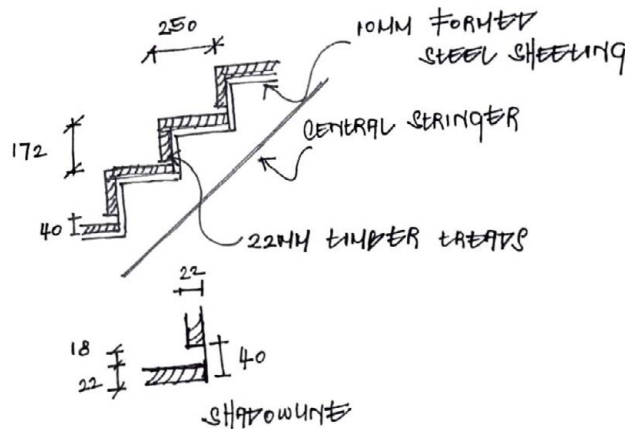 250
10MM FORMED
STEEL SHEETING
CENTRAL STRINGER
172
40
22MM TIMBER TREADS
22
18
40
22
SHADOWLINE